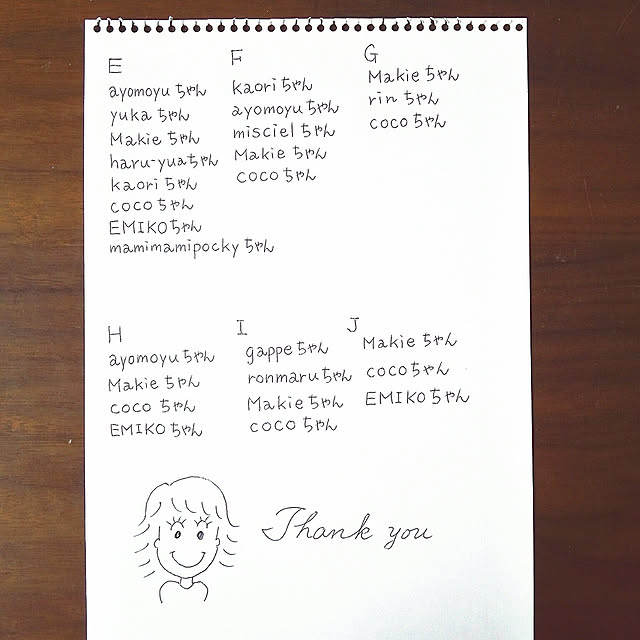 E
ayomoyuちゃん
yukaちゃん
Makieちゃん
haru-yuaちゃん
kaoriちゃん
cocoちゃん
EMIKOちゃん
mamimamipockyちゃん
F
kaoriちゃん
ayomoyuちゃん
miscielちゃん
Makieちゃん
cocoちゃん
G
Makieちゃん
rinちゃん
cocoちゃん
H
ayomoyuちゃん
Makieちゃん
cocoちゃん
EMIKOちゃん
I
gappeちゃん
ronmaruちゃん
Makieちゃん
cocoちゃん
J
Makieちゃん
cocoちゃん
EMIKOちゃん
Thank you